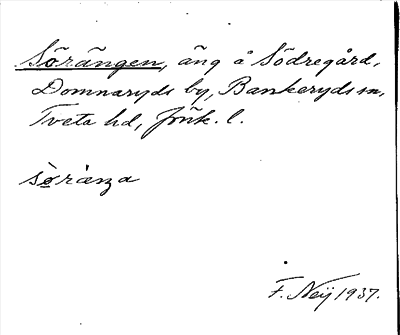 Sörängen, äng å Södregård,
Domnaryds by, Bankeryds sn,
Tveta hd, Jönk. l.
sø̀ràŋa
F. Neij 1937.